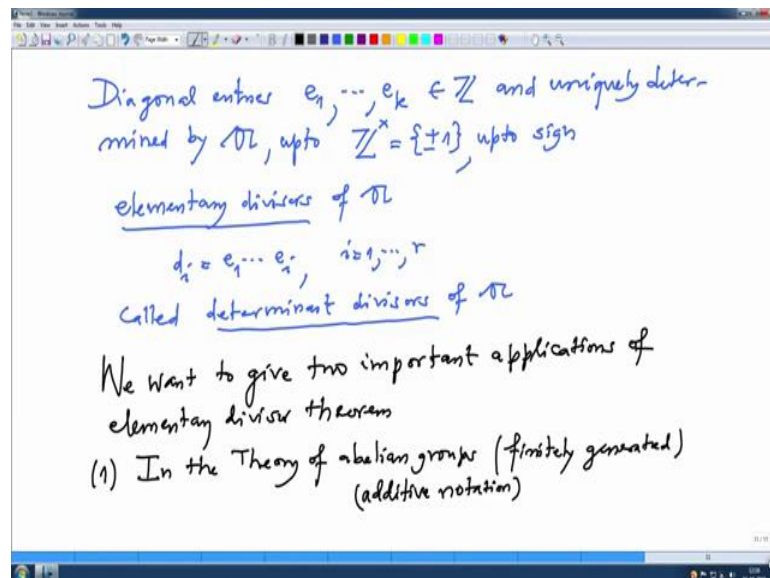 Note1 - Windows Journal
File Edit View Insert Actions Tools Help
Page Width
Diagonal entries e₁, ..., e_k ∈ ℤ and uniquely deter-
mined by 𝔐, upto ℤ^× = {±1}, upto sign
elementary divisors of 𝔐
d_i = e₁ ... e_i, i=1, ..., r
called determinant divisors of 𝔐
We want to give two important applications of
elementary divisor theorem
(1) In the Theory of abelian groups (finitely generated)
(additive notation)